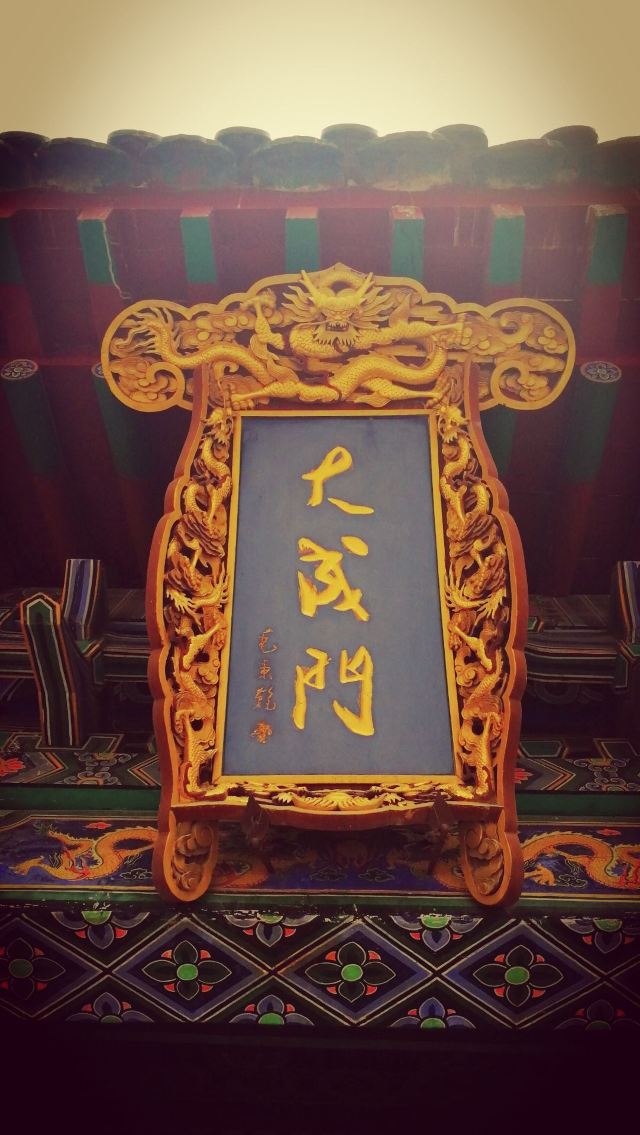 大成門